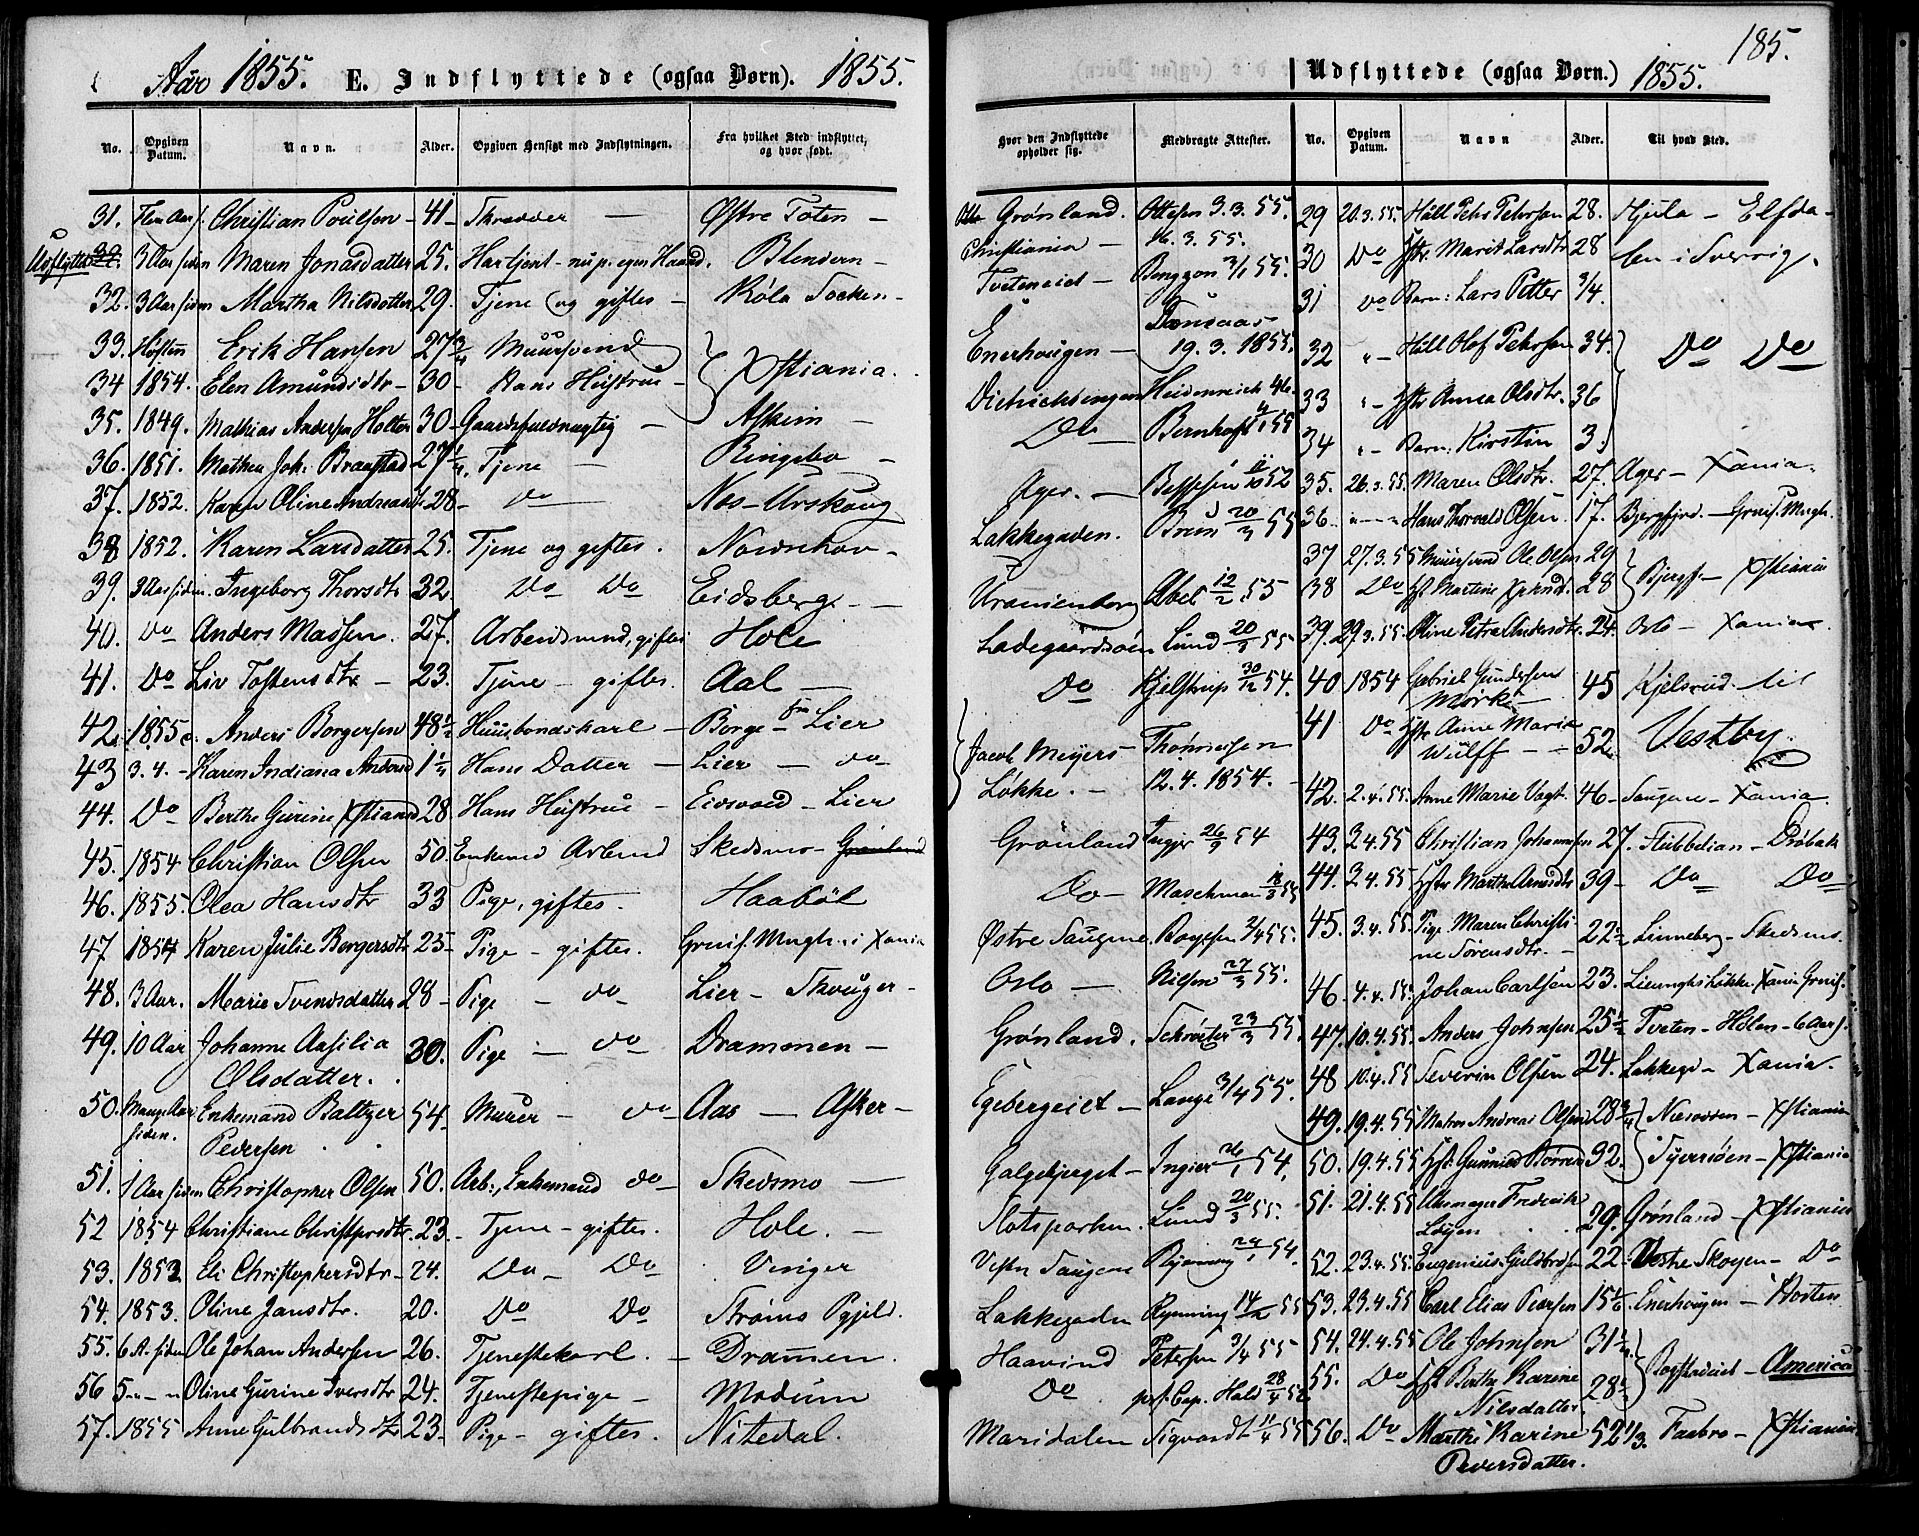 Aar 1855. E. Indflyttede (ogsaa Børn). 1855.
No. Opgiven Datum. Navn. Alder. Opgiven Hensigt med Indflytningen. Fra hvilket Sted indflyttet, og hvor født.
31. Christian Poulsen 41 Skrædder — Østre Toten —
Udflyttet 3 Aar siden Maren Jonasdatter 25. Blendern —
32. 3 Aar siden Martha Nilsdatter 29. Tjene og giftes — Røla Socken —
33. Høsten Erik Hansen 27 3/4 Muursvend
34 1854. Elen Amundsdtr — 30 — Hans Hustrue — } Xstiania.
35. 1849. Mathias Andersen Holter 30 — Gaardsfuldmægtig — Askim —
36. 1851. Mathea Joh: Braastad 27 1/4 Tjene — Ringebo —
37. 1852. Karen Oline Andreasdtr 28 — Do — Nes - Urskoug
38 1852. Karen Larsdatter 25. Tjene og giftes. Nordrehov —
39. 3 Aar siden. Ingeborg Thorsdtr 32. Do Do Eidsberg. —
40. Do Anders Madsen. 27. Arbeidsmand, giftes Hole
41. Do Liv Tostensdtr — 23. Tjene — giftes. Aal —
42. 1855. Anders Borgersen 48 1/2 Huusbondskarl — Borge fra Lier
43 3. 4. — Karen Indiana Andersd 1 1/4 Hans Datter — Lier — do
44. Do Berthe Gurine Xstiansd 28 Hans Hustrue — Eidsvold — Lier
45. 1854 Christian Olsen 50. Enkemd Arbmd Skedsmo — Grønland
46. 1855. Olea Hansdtr 33 Pige, giftes. Haabøl
47 1854 Karen Julie Borgersdtr 25 Pige — giftes. Garnis. Mengh. i Xania
48. 3 Aar. Marie Svendsdatter 28 — Pige — do Lier — Skouger —
49. 10 Aar Johanne Aasilia Olsdatter. 30. Pige — do Drammen —
50. Mange Aar siden. Enkemand Baltzer Pedersen 54. Murer — do Aas — Asker —
51. 1 Aar siden Christopher Olsen 50. Arb:, Enkemand do Skedsmo —
52 1854 Christiane Christophersdtr. 23. Tjene — giftes. Hole. —
53. 1852 Eli Christophersdtr — 24. Do — Do Vinger
54. 1853. Oline Jansdtr. 20. Do Do Strøms Pgjeld.
55. 6 A. siden Ole Johan Andersen 26. Tjenestekarl. — Drammen.
56 5 — " — " Oline Gurine Iversdtr 24. Tjenestepige — Modum
57. 1855 Anne Gulbrandsdtr 23. Pige — giftes. Nitedal.
185.
Udflyttede (ogsaa Børn.) 1855.
Hvor den Indflyttede opholder sig. Medbragte Attester. No. Opgiven Datum. Navn Alder. Til hvad Sted.
Grønland. Ottesen 3. 3. 55. 29 20. 3. 55. Petersen 28. Hjula — Elfda-
Christiania — 16. 3. 55. 30 Do Hstr. Marit Larsdtr 28 len i Sverrig.
Tveteneid — 31 Do Barn: Lars Petter 3/4.
Enerhougen — 19. 3. 1855. 32 " — Olof Petersen 34. } Do Do
33 " — Hstr Anna Olsdtr. 36
Do — Bernhoft 34 " — Barn: Kirstin 3.
Ager. — 35. 26. 3. 55. Maren Olsdtr. 27. Ager — Xania.
Lakkegaden. Brun 20/3 55 36. " — " — " Hans Thorvald Olsen 17. Garnis. Mngh.
37 27. 3. 55 Muursvend Ole Olsen 29
Uranienborg Abel 12/2 55 38 Do 28 } — Xstiania
Ladegaardsøen Lund 20/3 55 39. 29. 3. 55. Oline Petra Andersdtr. 24. Oslo — Xania.
Do Kjelstrup 30/12 54. 40 1854 Gabriel Gundersen Mørk — 45 Kjelsrud til
41 Do Hstr Anne Maria Wulff — 52 Vestby.
Jacob Meyers Løkke. — 12. 4. 1854. — 42. 2. 4. 55. Anne Marie Vogt. 46 — Saugene — Xania.
Grønland 26/9 54 43. 3. 4. 55 Christian Johannesen 27. Stubbelian — Drøbak
Do — Maschman 44. 3. 4. 55. Hstr Marthe Arnesdtr 39 — Do Do
Østre Saugene 45. 3. 4. 55. Pige Maren Christine Sørensdtr. — 22 1/2 Linneberg — Skedsmo.
Oslo — Nilsen 27/3 55. 46. 4. 4. 55. Johan Carlsen 23. Xania Garnis.
Grønland. Schrøter 23/3 55. 47. 10. 4. 55. Anders Johnsen 25 1/2 Tveten — Hølen — 6 Aar s.
Egebergeiet — Lange 3/4 55. 48 10. 4. 55 Severin Olsen 24. Lakkegd — Xania.
49. 19. 4. 55 Andreas Olsen 28 3/4 } Næsodden — Xstiania
Galgebjerget — 54. 50. 19. 4. 55 32. Tyveriøen — Xstiania
Slotsparken. Lund 20/3 55. 51. 21. 4. 55 Fredrik 29. Grønland — Xstiania
Vestre Saugene Rynning 54. 52. 23. 4. 55 Eugenius Guldbrdsen 22 — Vestre Skogen — Do
Lakkegaden Rynning 55 53. 23. 4. 55 Carl Elias Pedersen 15 1/2 Enerhougen — Horten
Haavind Petersen 3/4 55 54. 24. 4. 55 Ole Johnsen 31 1/2
Do prs. Cap. Hald 28/4 52 55. Do Hst Berthe Karine Nilsdatter. 28 1/2 } — America
Maridalen Sigvardt 11/4 55 56. Do Marthe Karine Pedersdatter. 52 1/3. Faabro — Xstiania